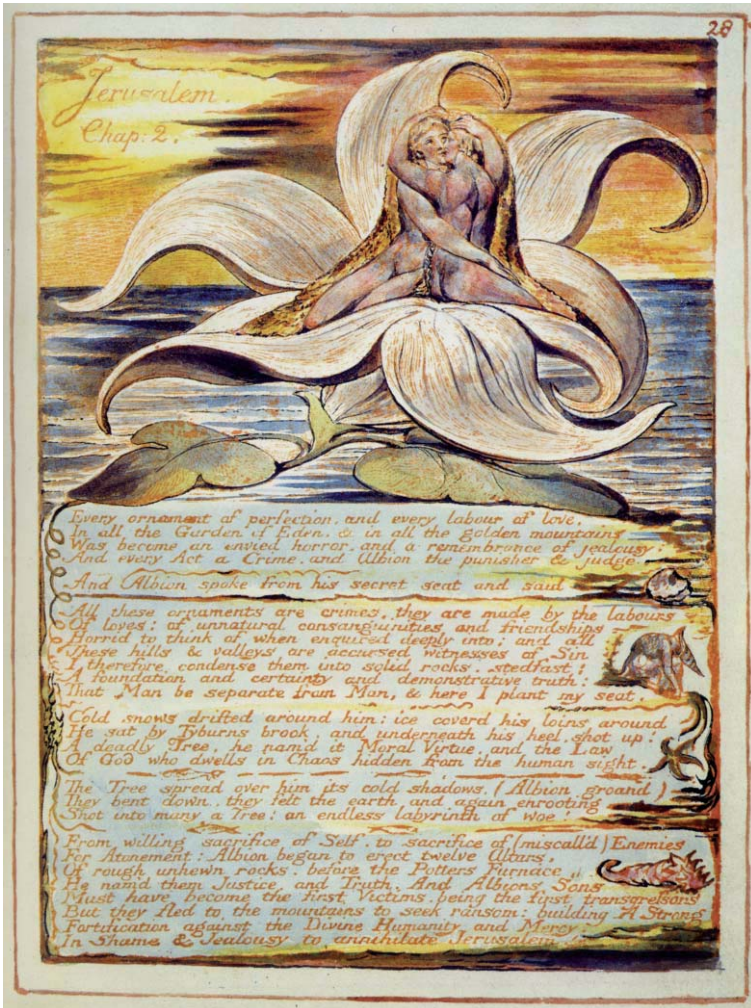 28
Jerusalem.
Chap: 2.
Every ornament of perfection, and every labour of love,
In all the Garden of Eden, & in all the golden mountains
Was become an envied horror, and a remembrance of jealousy:
And every Act a Crime, and Albion the punisher & judge.
And Albion spoke from his secret seat and said
All these ornaments are crimes, they are made by the labours
Of loves: of unnatural consanguinities and friendships
Horrid to think of when enquired deeply into; and all
These hills & valleys are accursed witnesses of Sin
I therefore condense them into solid rocks, stedfast!
A foundation and certainty and demonstrative truth:
That Man be separate from Man, & here I plant my seat.
Cold snows drifted around him: ice coverd his loins around
He sat by Tyburns brook, and underneath his heel, shot up!
A deadly Tree, he nam'd it Moral Virtue, and the Law
Of God who dwells in Chaos hidden from the human sight.
The Tree spread over him its cold shadows, (Albion groand)
They bent down, they felt the earth and again enrooting
Shot into many a Tree! an endless labyrinth of woe!
From willing sacrifice of Self, to sacrifice of (miscall'd) Enemies
For Atonement: Albion began to erect twelve Altars,
Of rough unhewn rocks, before the Potters Furnace
He nam'd them Justice, and Truth. And Albions Sons
Must have become the first Victims, being the first transgressors
But they fled to the mountains to seek ransom: building A Strong
Fortification against the Divine Humanity and Mercy,
In Shame & Jealousy to annihilate Jerusalem!